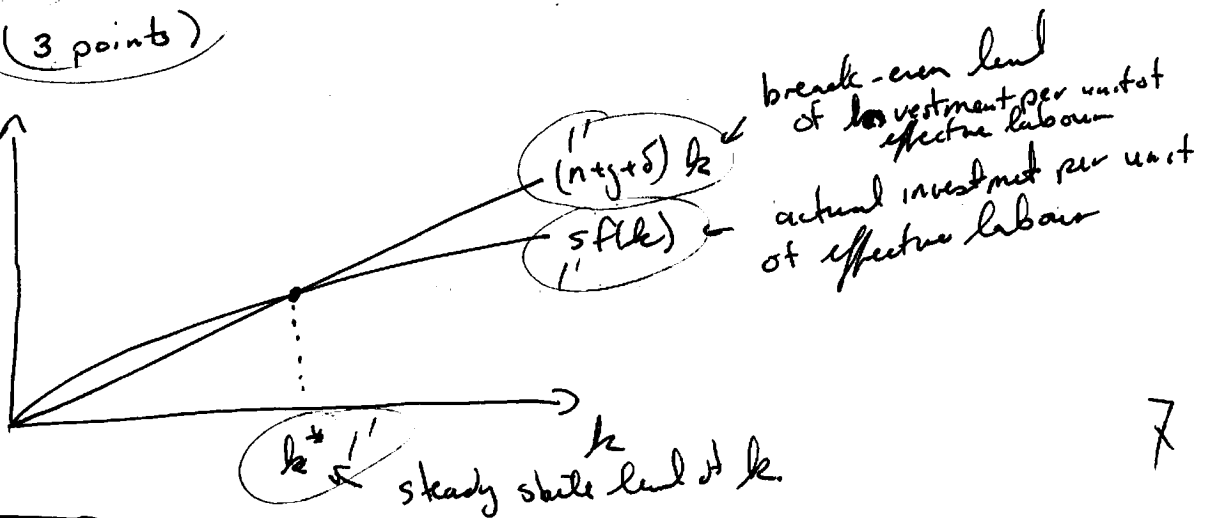 (3 points)
break-even level
of investment per unit of
effective labour
(n+g+δ) k
1'
sf(k)
1'
actual investment per unit
of effective labour
k* 1'
k
steady state level of k.
7